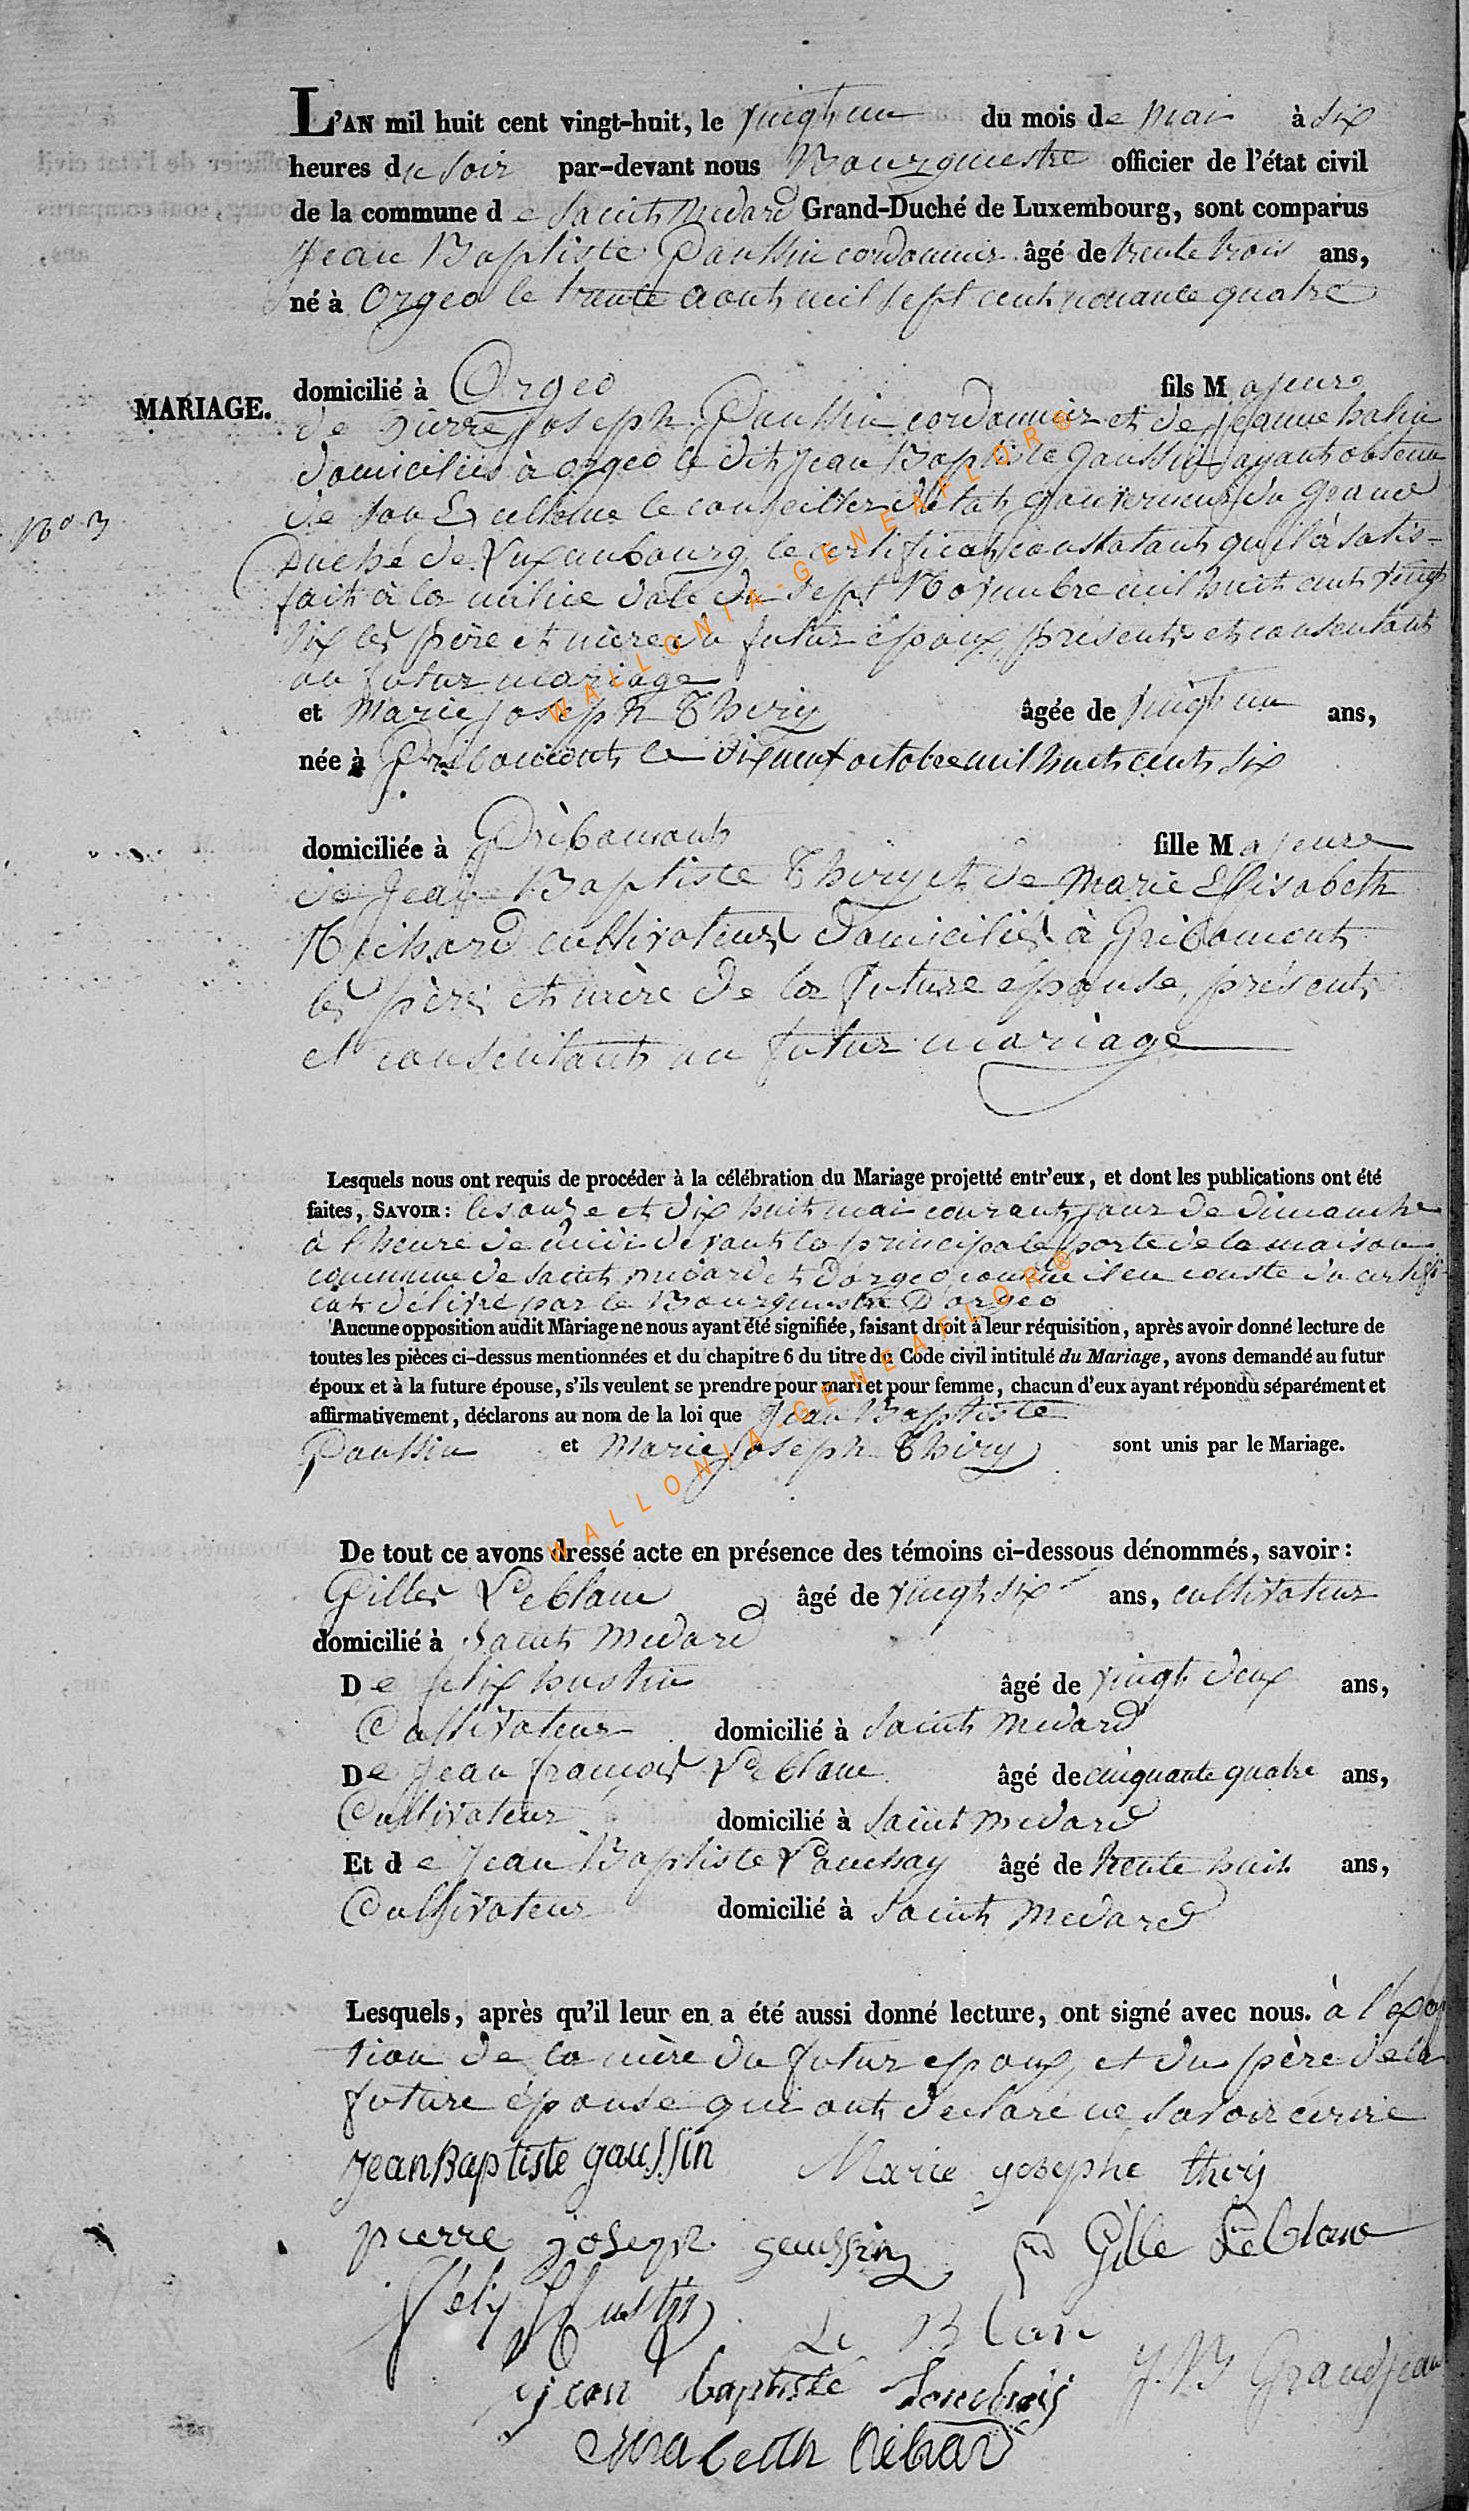 L'AN mil huit cent vingt-huit, le vingt un du mois de mai à six
heures du soir par-devant nous Bourgmestre officier de l'état civil
de la commune de Saint Medard Grand-Duché de Luxembourg, sont comparus
Jean Baptiste Gaussin cordonnier âgé de trente trois ans,
né à Orgeo le trente aout mil sept cent nonante quatre
domicilié à Orgeo fils Majeure
MARIAGE.
de Pierre Joseph Gaussin cordonnier et de Jeanne
domiciliés à orgeo le dit Jean Baptiste Gaussin ayant obtenu
de son Excellence le conseiller d'état gouverneur du Grand
No 3
Duché de Luxembourg le certificat constatant qu'il à satis-
fait à la milice daté du sept Novembre mil huit cent vingt
six les père et mère du futur époux, présents et consentant
au futur mariage
et Marie Joseph Thiry âgée de vingt un ans,
née à Gribomont le dix neuf octobre mil huit cent six
domiciliée à Gribomont fille Majeure
de Jean Baptiste Thiry et de Marie Elisabeth
Nichard cultivateurs domiciliés à Gribomont
les père et mère de la future épouse, présents
et consentants au futur mariage
Lesquels nous ont requis de procéder à la célébration du Mariage projetté entr'eux, et dont les publications ont été
faites, SAVOIR: les onze et dix huit mai courant jour de dimanche
à l'heure de midi devant la principale porte de la maison
commune de Saint medard et d'orgeo comme il en conste du certifi-
cat délivré par le Bourgmestre D'orgeo
Aucune opposition audit Mariage ne nous ayant été signifiée, faisant droit à leur réquisition, après avoir donné lecture de
toutes les pièces ci-dessus mentionnées et du chapitre 6 du titre du Code civil intitulé du Mariage, avons demandé au futur
époux et à la future épouse, s'ils veulent se prendre pour mari et pour femme, chacun d'eux ayant répondu séparément et
affirmativement, déclarons au nom de la loi que Jean Baptiste
Gaussin et Marie Joseph Thiry sont unis par le Mariage.
De tout ce avons dressé acte en présence des témoins ci-dessous dénommés, savoir:
Gilles Leblanc âgé de vingt six ans, cultivateur
domicilié à Saint Medard
De felix hustin âgé de vingt deux ans,
Cultivateur domicilié à Saint Medard
De Jean françois Leblanc âgé de cinquante quatre ans,
Cultivateur domicilié à Saint Medard
Et de Jean Baptiste Lonchay âgé de trente huit ans,
Cultivateur domicilié à Saint Medard
Lesquels, après qu'il leur en a été aussi donné lecture, ont signé avec nous. à l'excep
tion de la mère du futur epoux, et du père de la
future épouse qui ont declaré ne savoir écrire
Jean Baptiste gaussin Marie Josephe thiry
pierre joseph gaussin Gille Le blanc
félix hustin
Le Blan
jean baptiste Lonchay J. B Grandjean
WALLONIA-GENEAFLOR®
WALLONIA-GENEAFLOR®